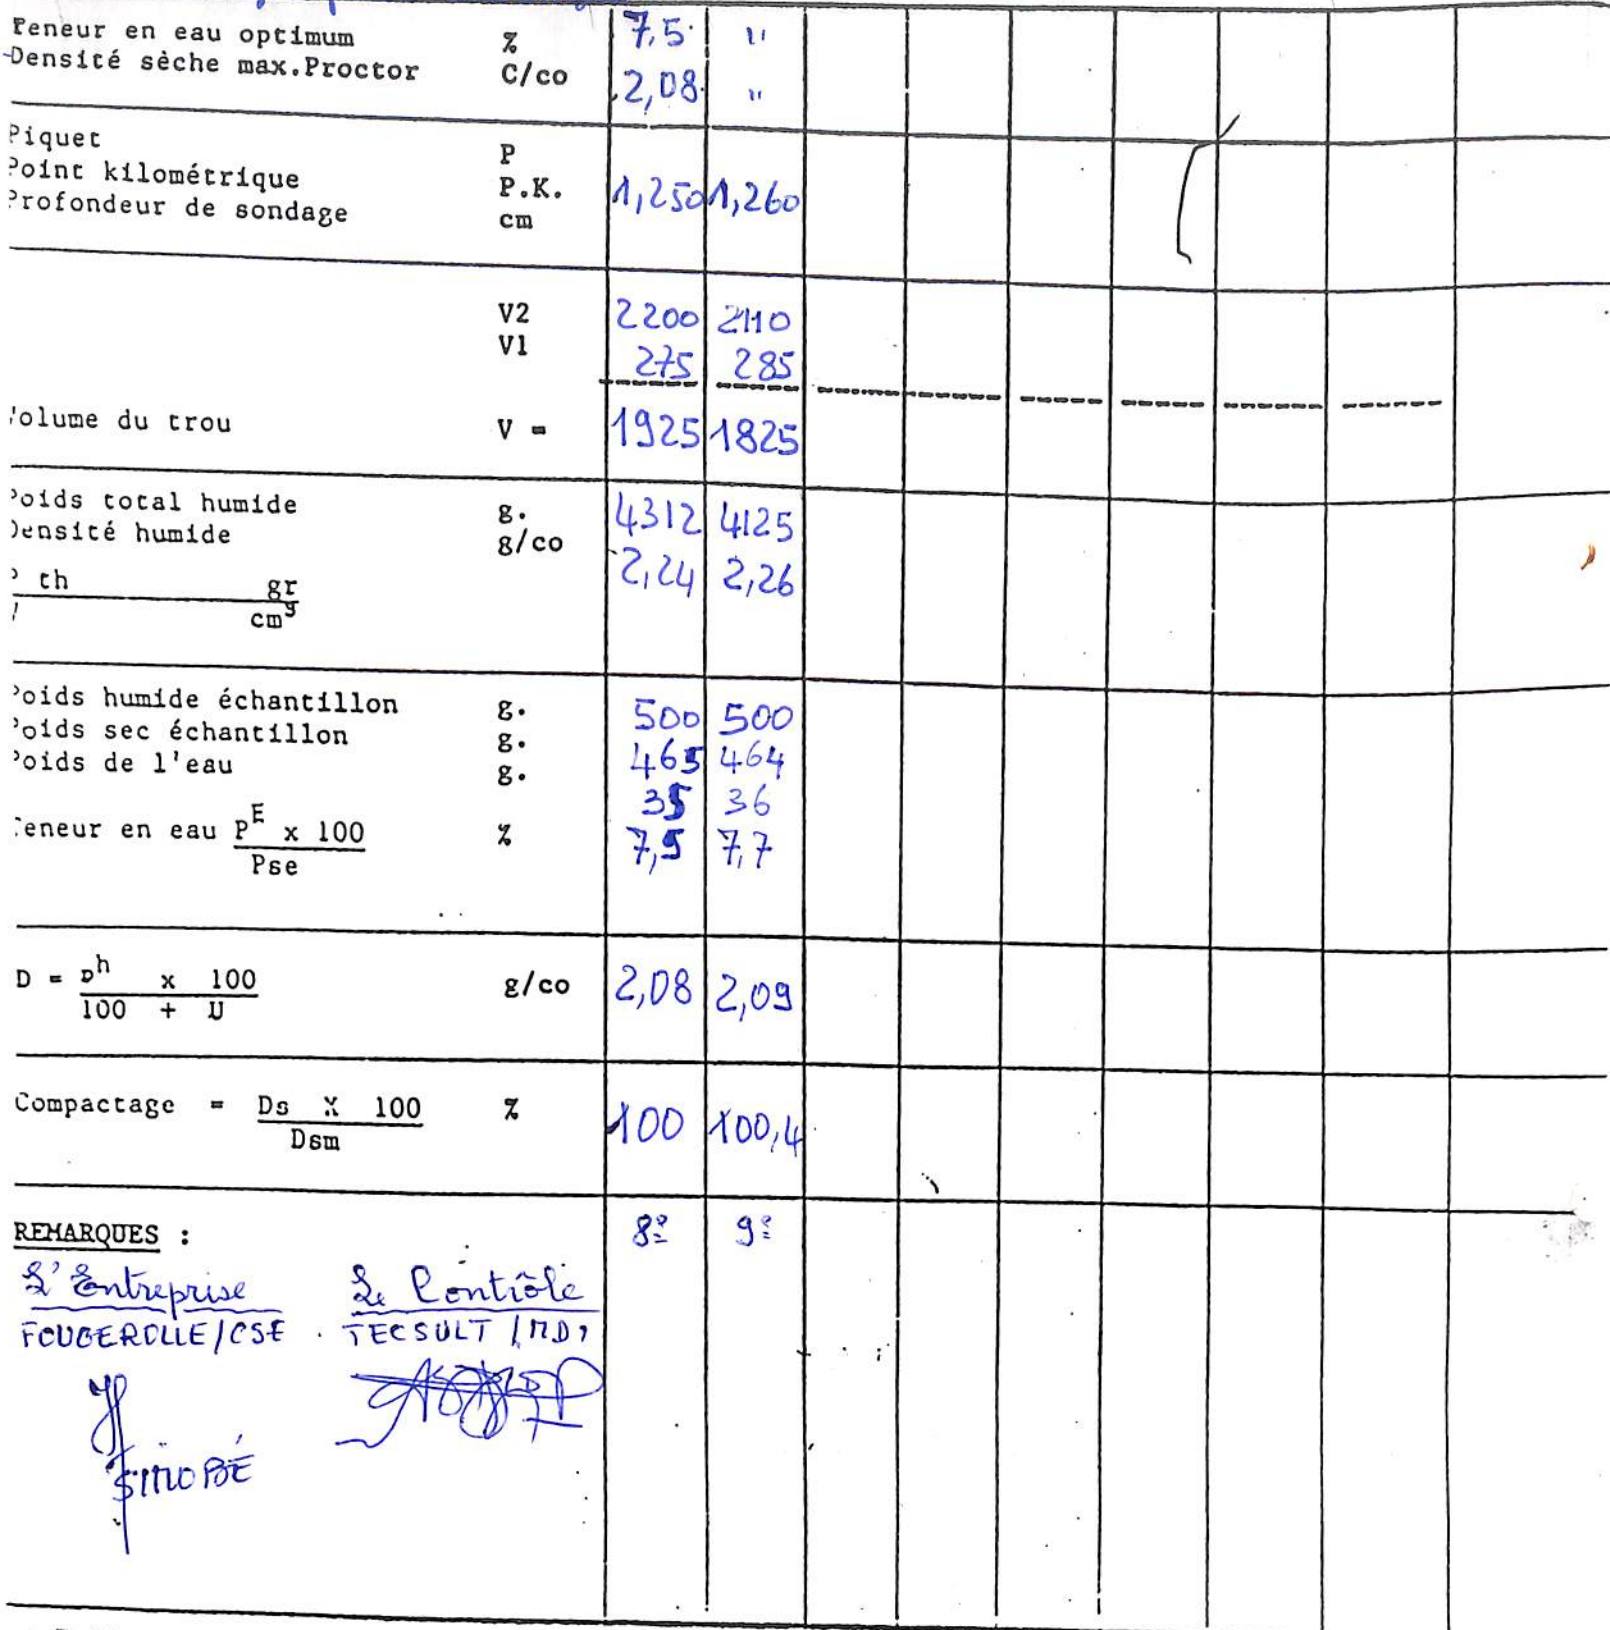 Teneur en eau optimum % 7,5 "
Densité sèche max.Proctor C/co 2,08 "
Piquet P
Point kilométrique P.K. 1,250 1,260
Profondeur de sondage cm
V2 2200 2110
V1 275 285
Volume du trou V = 1925 1825
Poids total humide g. 4312 4125
Densité humide g/co 2,24 2,26
P th gr
cm³
Poids humide échantillon g. 500 500
Poids sec échantillon g. 465 464
Poids de l'eau g. 35 36
Teneur en eau P^E x 100 % 7,5 7,7
Pse
D = p^h x 100 g/co 2,08 2,09
100 + U
Compactage = Ds X 100 % 100 100,4
Dsm
REMARQUES : 8e 9e
L'Entreprise Le Contrôle
FOUGEROLLE/CSE TECSULT